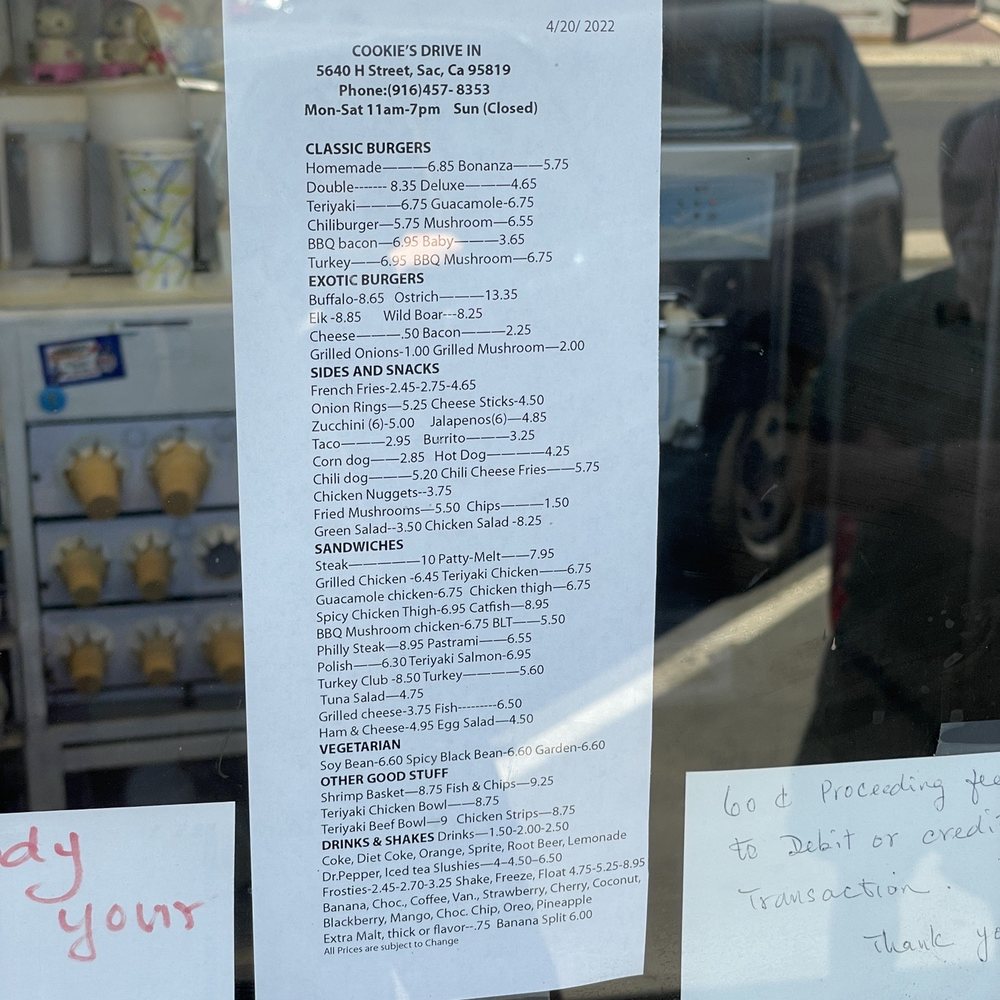 4/20/ 2022
COOKIE'S DRIVE IN
5640 H Street, Sac, Ca 95819
Phone:(916)457- 8353
Mon-Sat 11am-7pm Sun (Closed)
CLASSIC BURGERS
Homemade———6.85 Bonanza——5.75
Double------- 8.35 Deluxe———4.65
Teriyaki———6.75 Guacamole-6.75
Chiliburger—5.75 Mushroom—6.55
BBQ bacon—6.95 Baby———3.65
Turkey——6.95 BBQ Mushroom—6.75
EXOTIC BURGERS
Buffalo-8.65 Ostrich———13.35
Elk -8.85 Wild Boar---8.25
Cheese———.50 Bacon———2.25
Grilled Onions-1.00 Grilled Mushroom—2.00
SIDES AND SNACKS
French Fries-2.45-2.75-4.65
Onion Rings—5.25 Cheese Sticks-4.50
Zucchini (6)-5.00 Jalapenos(6)—4.85
Taco———2.95 Burrito———3.25
Corn dog——2.85 Hot Dog————4.25
Chili dog———5.20 Chili Cheese Fries——5.75
Chicken Nuggets--3.75
Fried Mushrooms—5.50 Chips———1.50
Green Salad--3.50 Chicken Salad -8.25
SANDWICHES
Steak—————10 Patty-Melt——7.95
Grilled Chicken -6.45 Teriyaki Chicken——6.75
Guacamole chicken-6.75 Chicken thigh—6.75
Spicy Chicken Thigh-6.95 Catfish—8.95
BBQ Mushroom chicken-6.75 BLT——5.50
Philly Steak—8.95 Pastrami——6.55
Polish——6.30 Teriyaki Salmon-6.95
Turkey Club -8.50 Turkey————5.60
Tuna Salad—4.75
Grilled cheese-3.75 Fish---------6.50
Ham & Cheese-4.95 Egg Salad—4.50
VEGETARIAN
Soy Bean-6.60 Spicy Black Bean-6.60 Garden-6.60
OTHER GOOD STUFF
Shrimp Basket—8.75 Fish & Chips—9.25
Teriyaki Chicken Bowl——8.75
Teriyaki Beef Bowl—9 Chicken Strips—8.75
DRINKS & SHAKES Drinks—1.50-2.00-2.50
Coke, Diet Coke, Orange, Sprite, Root Beer, Lemonade
Dr.Pepper, Iced tea Slushies—4–4.50–6.50
Frosties-2.45-2.70-3.25 Shake, Freeze, Float 4.75-5.25-8.95
Banana, Choc., Coffee, Van., Strawberry, Cherry, Coconut,
Blackberry, Mango, Choc. Chip, Oreo, Pineapple
Extra Malt, thick or flavor--.75 Banana Split 6.00
All Prices are subject to Change
dy
your
60 ¢ Proceeding fee
to Debit or credi
Transaction.
Thank yo